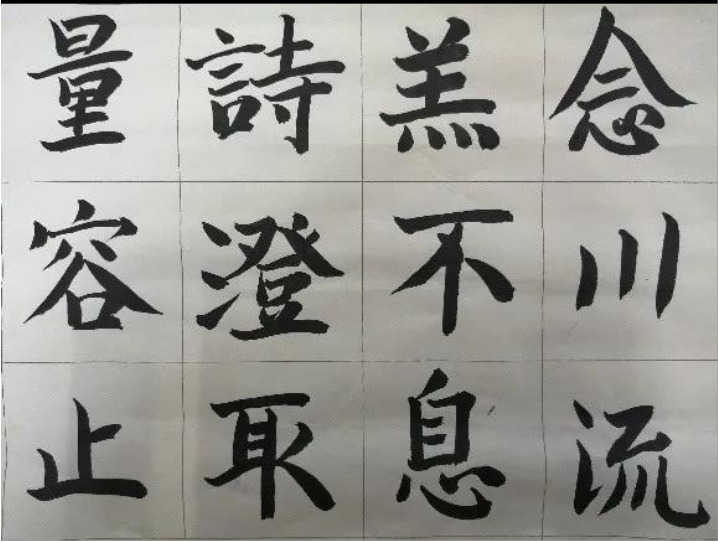 念川流
羔不息
詩澄取
量容止